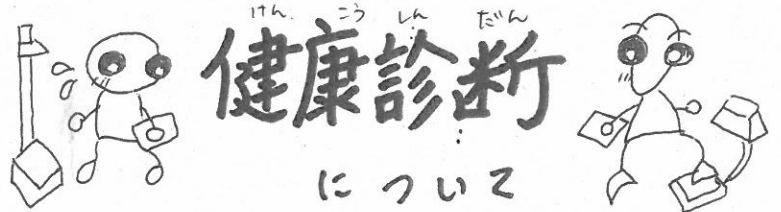 けん こう しん だん
健康診断
について